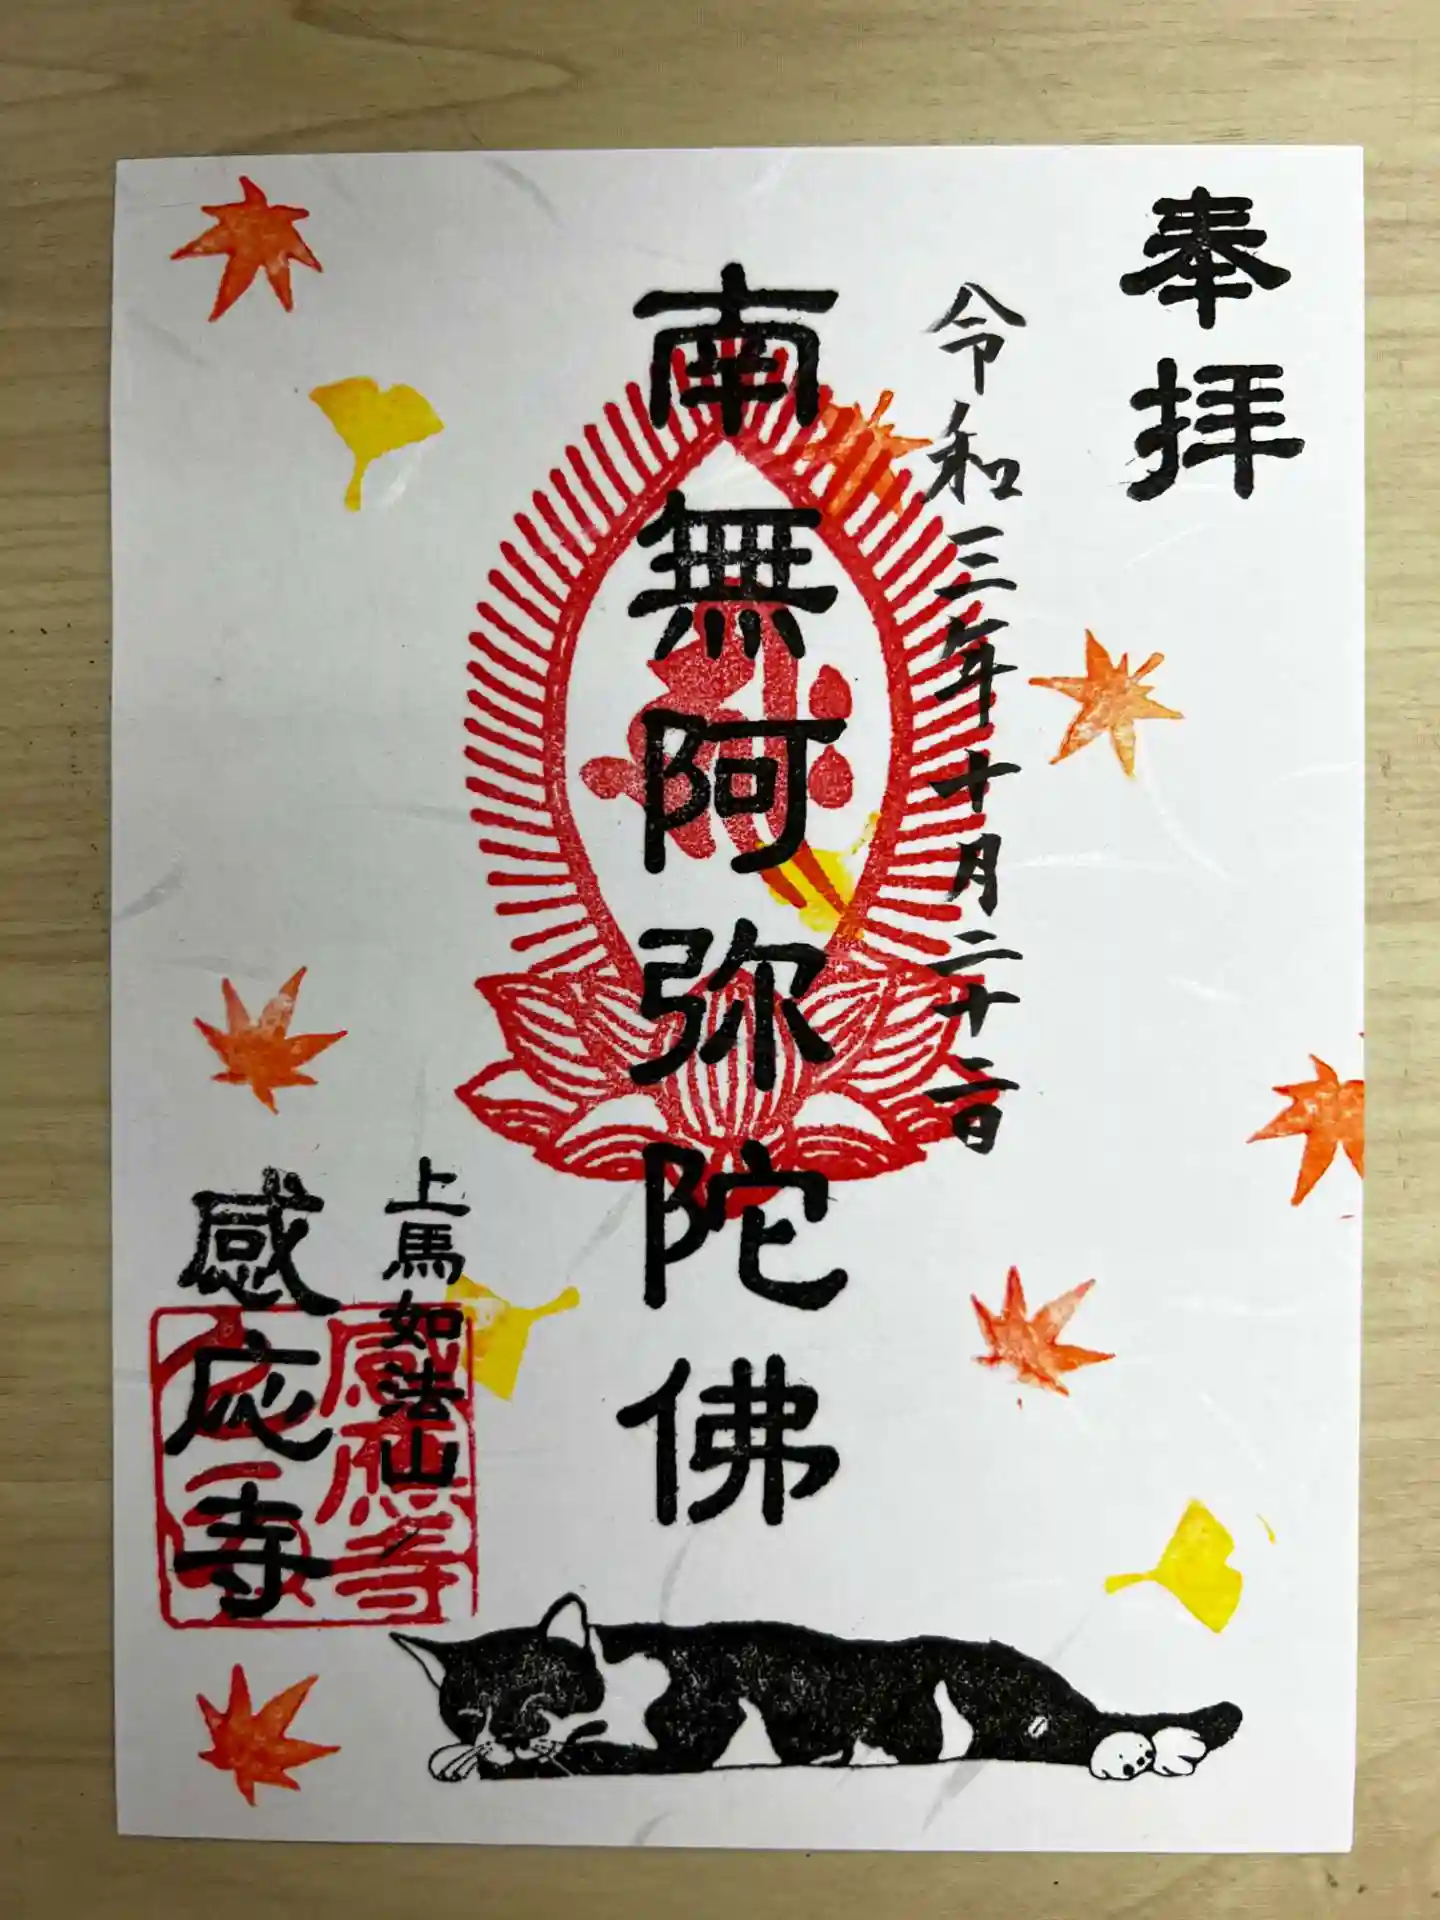 奉拝
令和三年十月二十二日
南無阿弥陀佛
上馬 如法山
感応寺